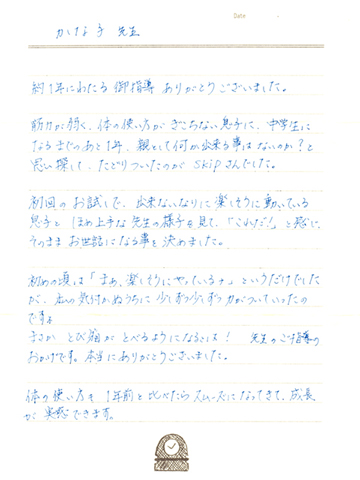 Date
かな子 先生
約1年にわたる 御指導 ありがとうございました。
筋力が弱く、体の使い方が ぎこちない息子に、中学生に
なるまでのあと1年、親として何か出来る事はないのか?と
思い探して、たどりついたのが SKipさんでした。
初回のお試しで、出来ないなりに 楽しそうに動いている
息子と ほめ上手な先生の様子を見て、「これだ!」と感じ、
そのまま お世話になる事を 決めました。
初めの頃は「まぁ、楽しそうにやっているナ」というだけでした
が、私の気付かぬうちに 少しずつ少しずつ 力がついていったの
ですね
まさか とび箱が とべるようになるとは! 先生のご指導の
おかげです。本当にありがとうございました。
体の使い方も 1年前と比べたら スムーズになってきて、成長
が 実感できます。